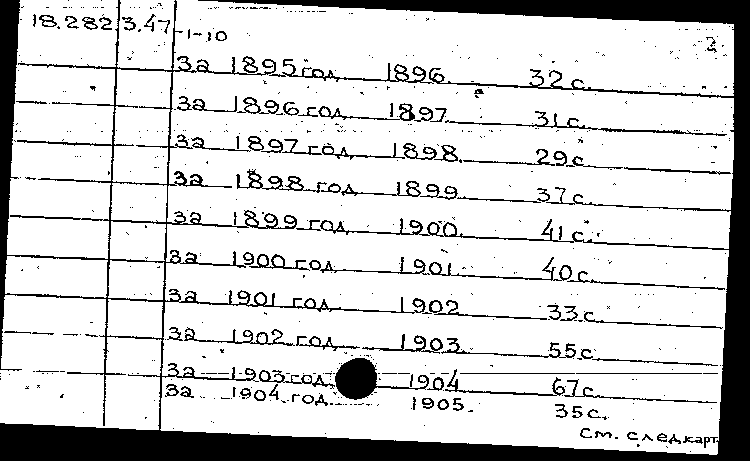 18.282 3.47-1-10 2
за 1895 год 1896. 32 с.
за 1896 год 1897. 31 с.
за 1897 год 1898. 29 с
за 1898 год 1899. 37 с.
за 1899 год 1900. 41 с.
за 1900 год 1901. 40 с.
за 1901 год 1902 33 с.
за 1902 год 1903. 55 с
за 1903 год 1904 67 с.
за 1904 год 1905. 35 с.
см. след. карт.